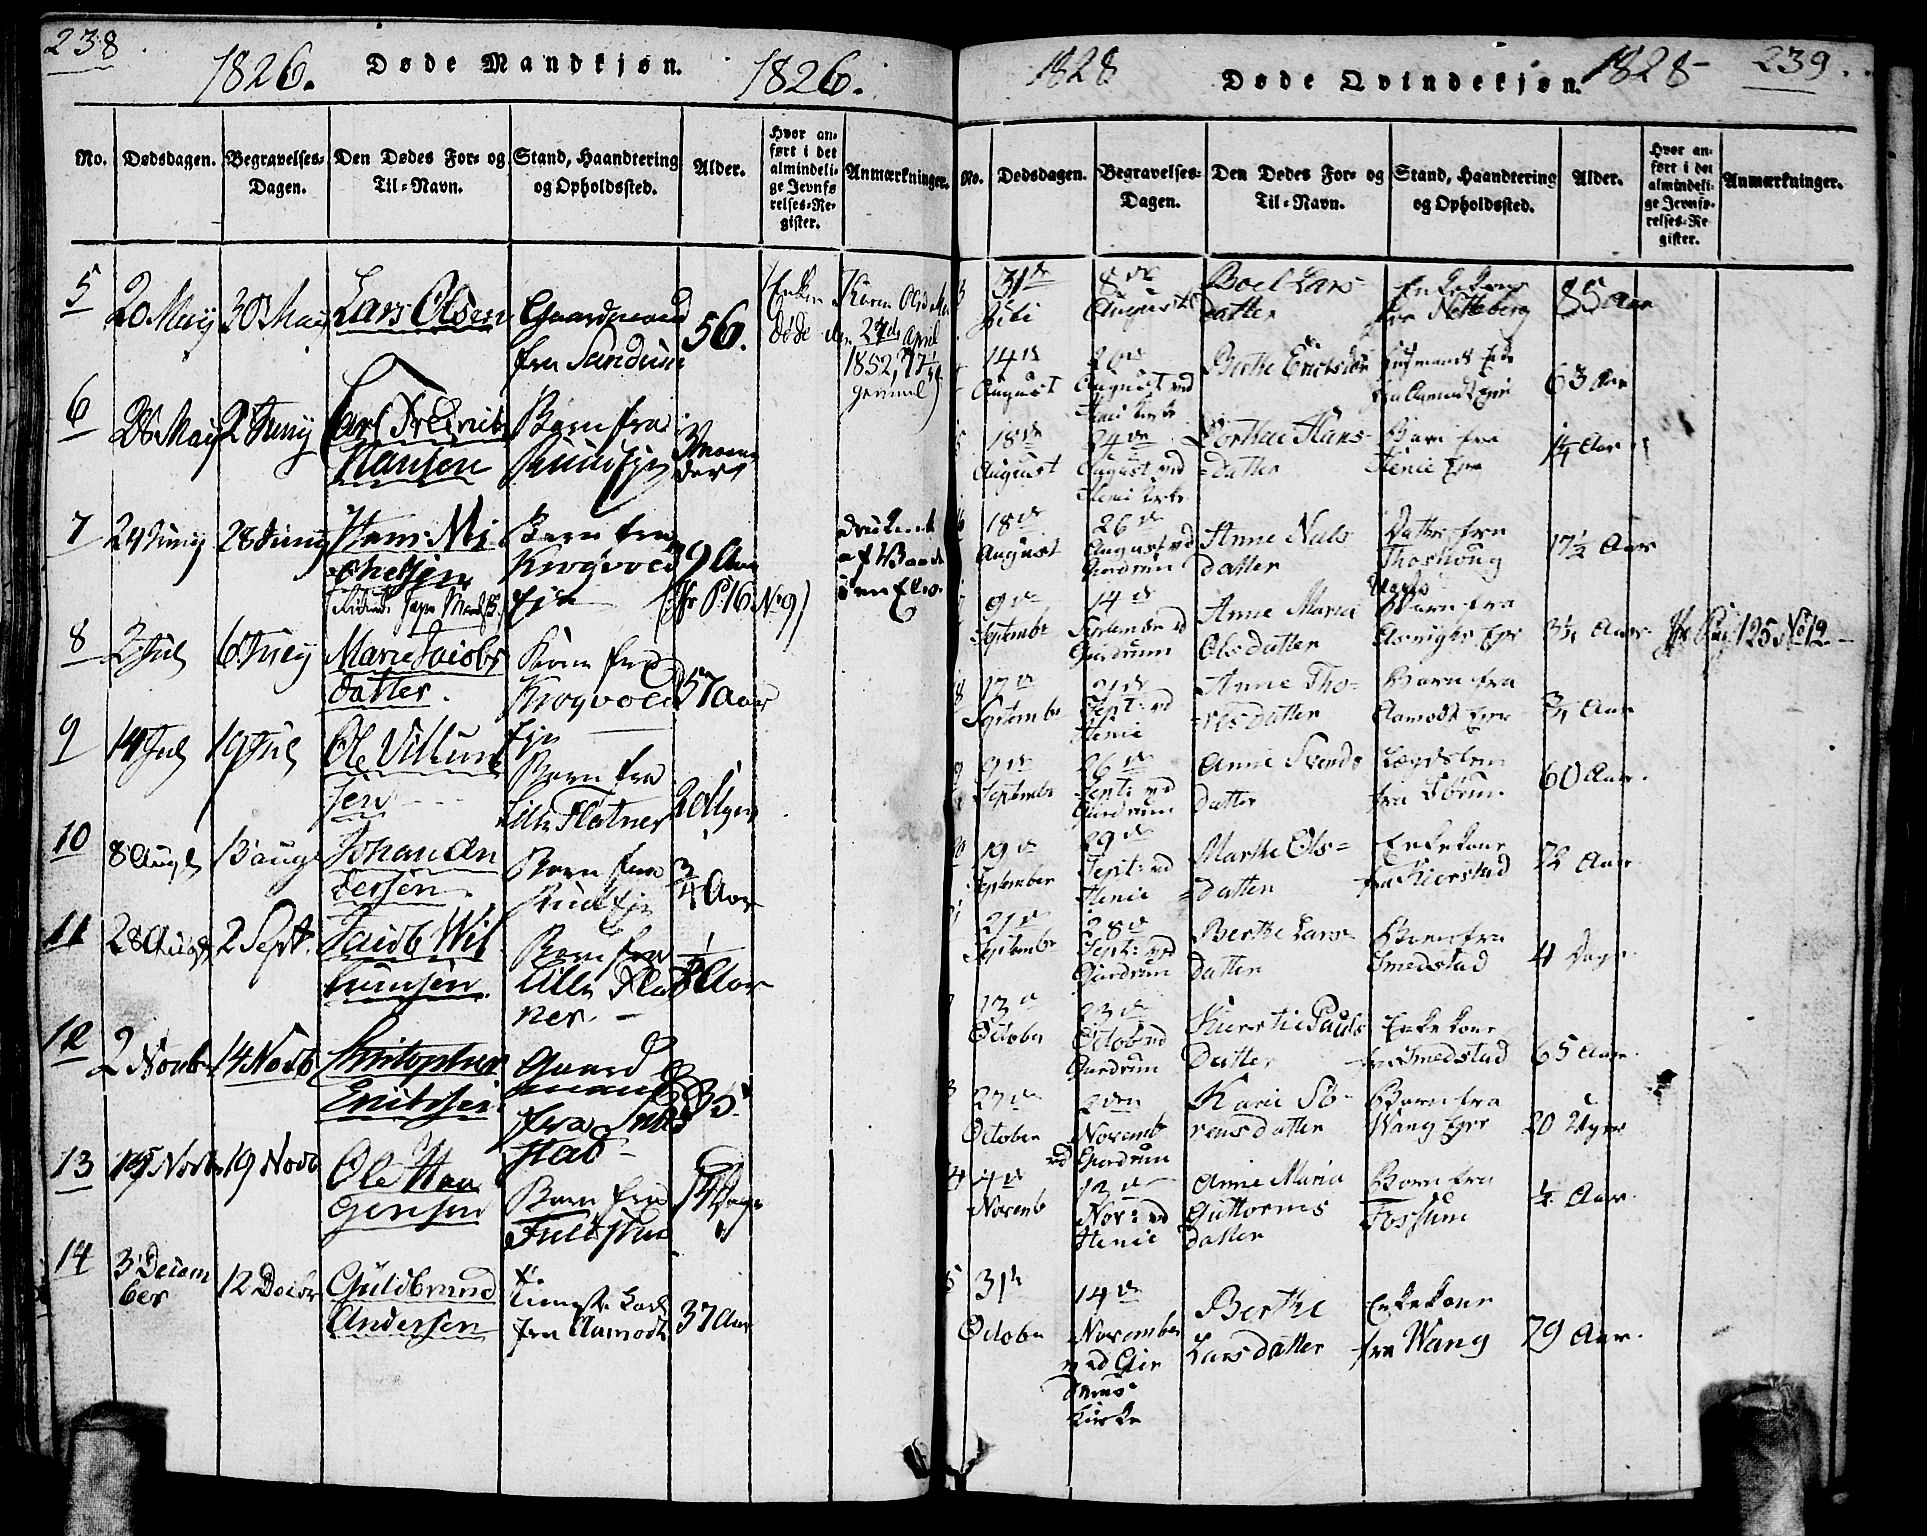 238
1826. Døde Mandkjøn. 1826.
No. Dødsdagen. Begravelses-Dagen. Den Dødes For- og Til-Navn. Stand, Haandtering og Opholdssted. Alder. Hvor anført i det almindelige Jevnførelses-Register. Anmærkninger.
5 20 May 30 May Lars Olsen Gaardmand fra 56. Enken Karen
døde den April
1852, 77
6 26 May 2 Juny Carl Fredrik Hansen Barn fra 3 Maaneder
7 24 Juny 28 Juny Hans Mi
chelsen Barn fra Krogvold Eje 9 Aar
(Jfr P. 16 No 9)
af Vande
8 2 Jul 6 July Marie Jacobs
datter. Kone fra Krogvold Eje 57 Aar
9 14 Jul 19 Jul Ole Villum
sen Barn fra Lille Flatner 20 Uger
10 8 Aug 13 Aug Johan An
dersen Barn fra 3/4 Aar
11 28 August 2 Sept. Jacob Wil
lumsen Barn fra Lille Flat
ner 1/8 Aar
12 2 Novb 14 Novb Christopher
Erichsen Gaardmand
fra Smed
stad 35
13 Novb 19 Novb Ole Haa
gensen Barn fra 14 Dage
14 3 Decem
ber 12 Decbr Guldbrand
Andersen fra Aamodt 37 Aar
1828 Døde Qvindekjøn. 1828 239.
No. Dødsdagen. Begravelses-Dagen. Den Dødes For- og Til-Navn. Stand, Haandtering og Opholdssted. Alder. Hvor anført i det almindelige Jevnførelses-Register. Anmærkninger.
3 31de Juli 8de August Boel Lars
datter Enkekone
fra Notteberg 85 Aar
14de August 20de August ved Henie Kirke Berthe Ericksdr Huusmands Enke 63 Aar
5 18de August 24de August ved Henie Kirke Dorthea Hans-
datter Barn fra
Henie Eje 1/4 Aar
6 18de August 26de August ved Gierdrum Anne Niels
datter Datter fra
Thoshoug 17 1/2 Aar
7 9de September 14de September ved Gierdrum Anne Maria
Olsdatter Barn fra Eje 3 1/4 Aar Jfr Pag 125 No 12
8 17de September 21de Sept: ved Henie Anne Tho-
resdatter Barn fra
Aamodt Eje 3/4 Aar
9 9de September 26de Sept: ved Gierdrum Anne Svends
datter Lægdslem
fra 60 Aar.
10 19de September 29de Sept: ved Henie Marthe Ols-
datter Enkekone
fra Kierstad Aar
21de September 28de Sept: ved Gierdrum Berthe Lars-
datter Barn fra
Smedstad 4 Dage
13de October 23de Octob ved Gierdrum Kierstie Pauls
Datter Enkekone
fra Smedstad 65 Aar
3 27de October 2den Novemb ved Gierdrum Karie Sö-
rensdatter Barn fra
Wang Eje 20 Uger
4 4de Novemb 12de Nov: ved Henie Anne Maria
Guttorms
datter Barn fra
Fossum 1/4 Aar.
5 31te October 14de November
ved Gier
drums
Kirke Berthe
Larsdatter Enkekone
fra Wang 79 Aar.